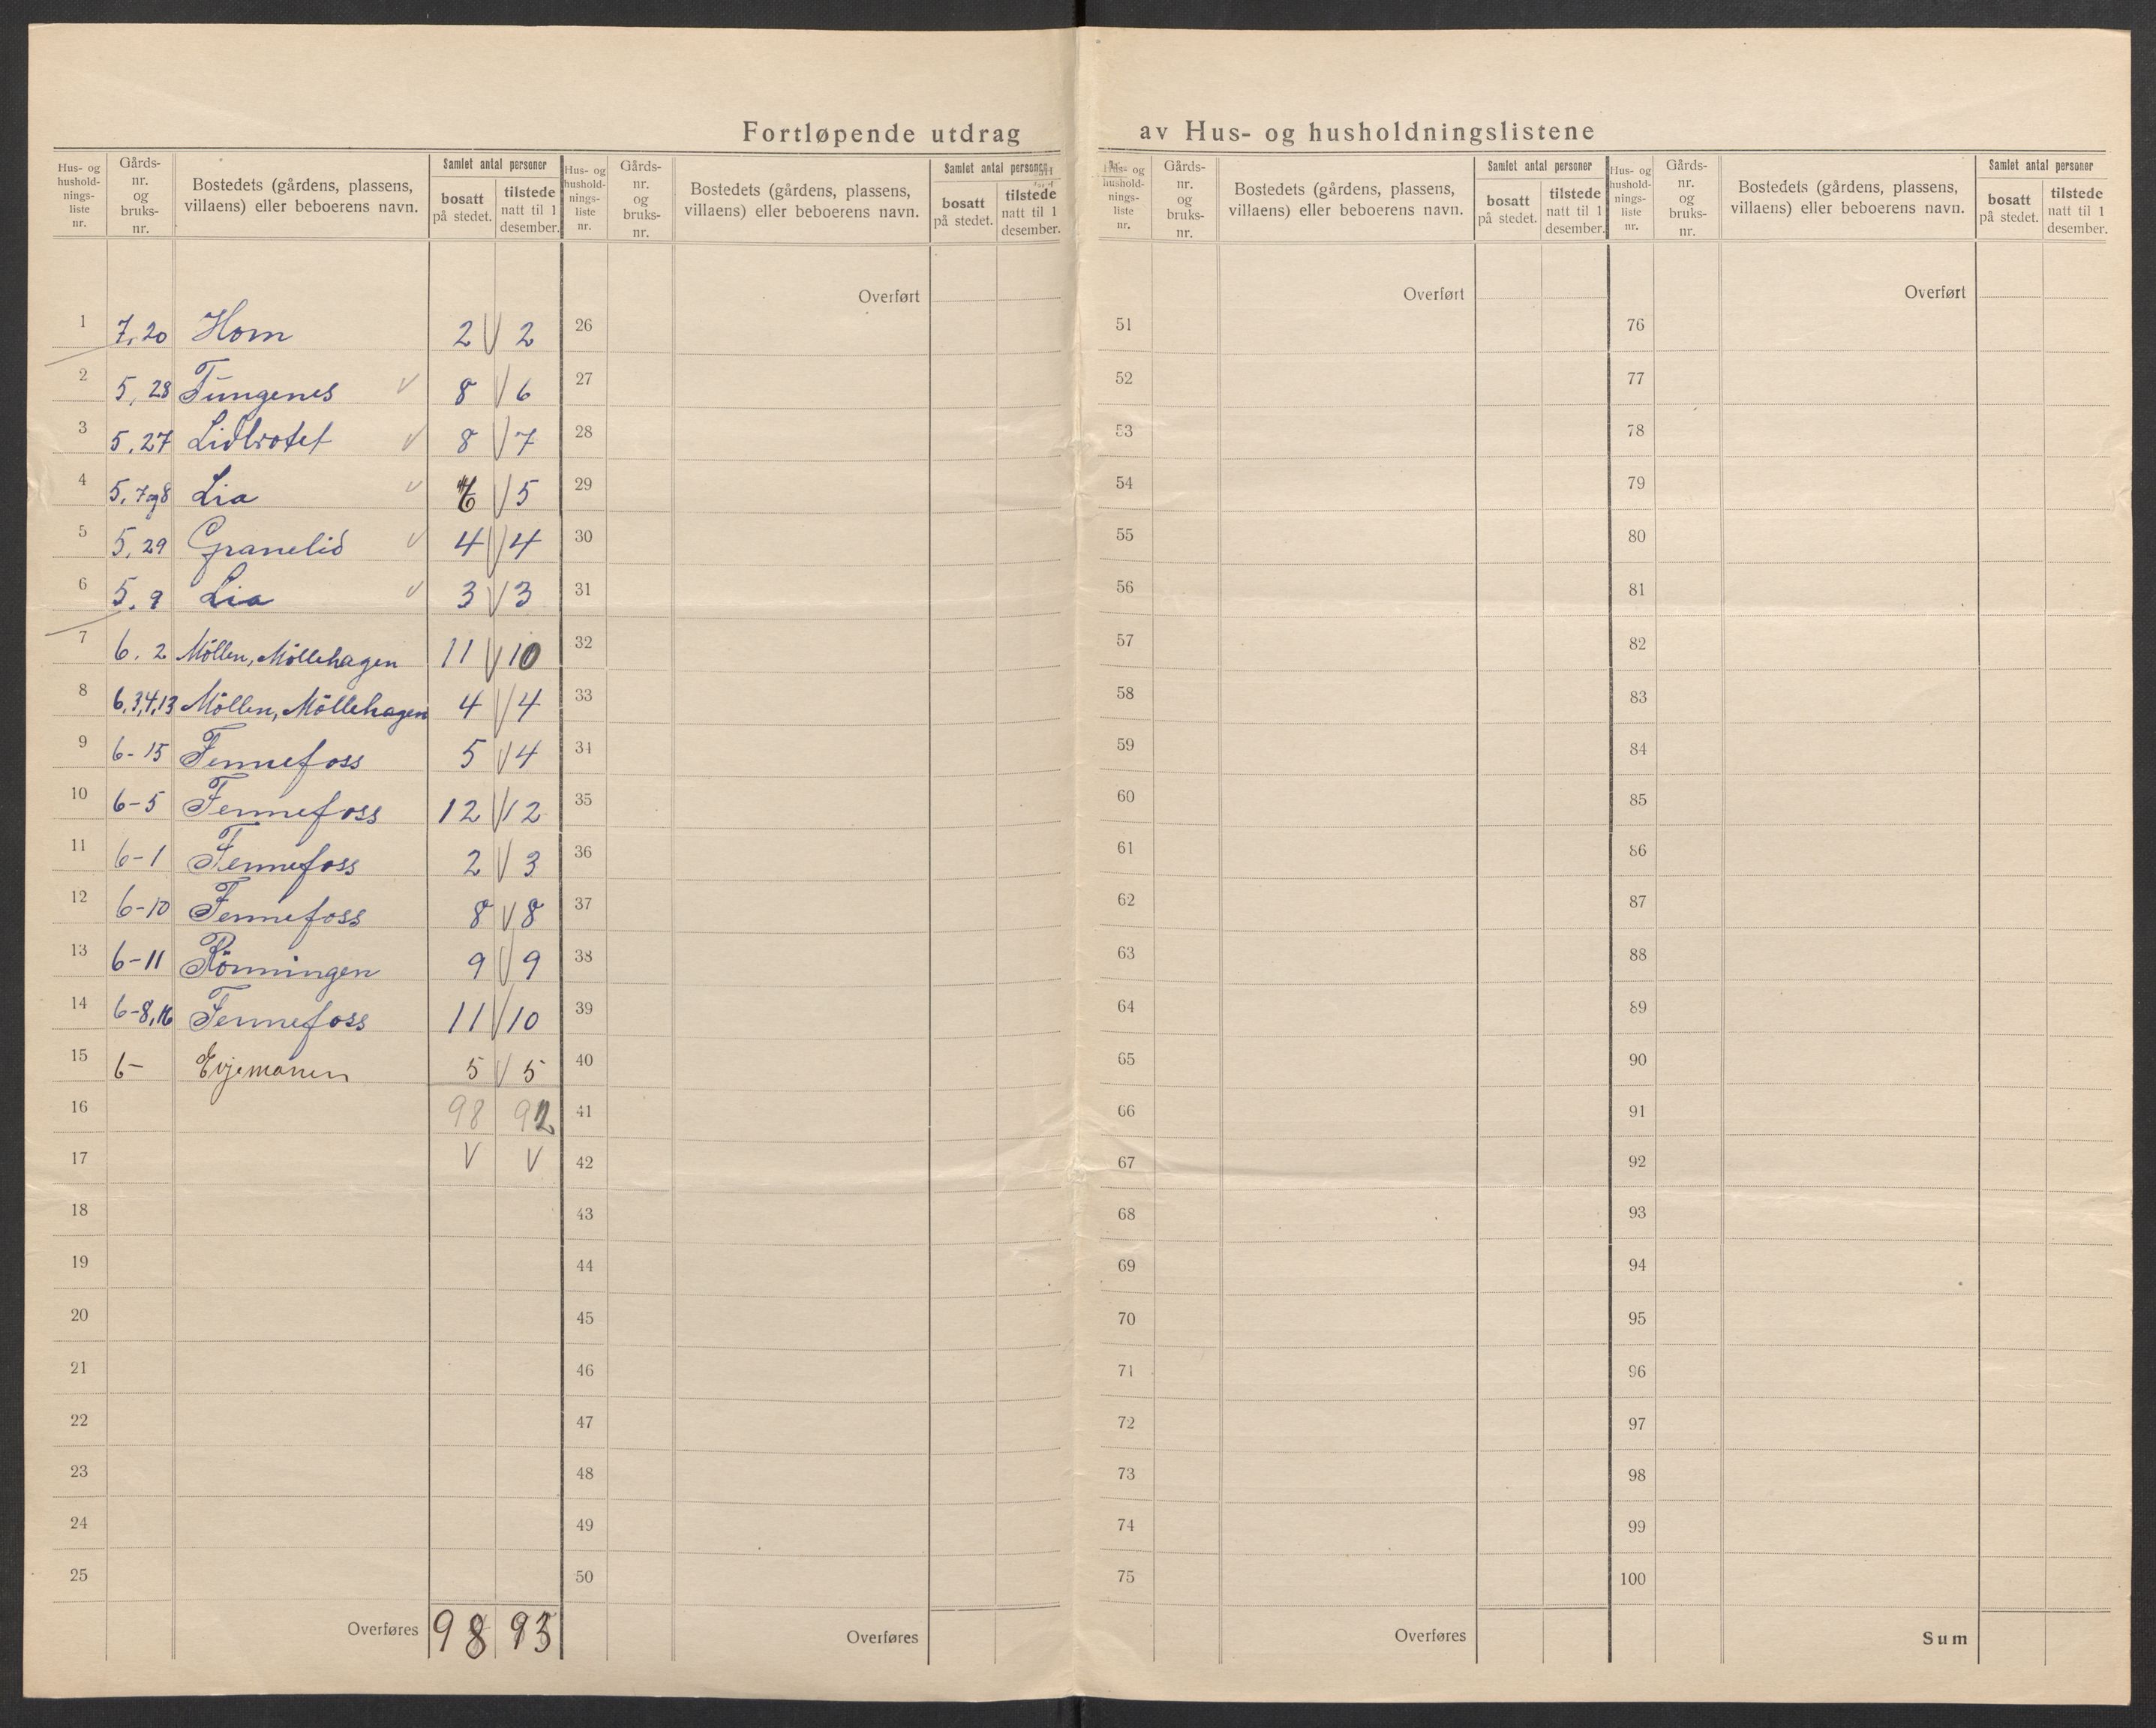 Fortløpende utdrag av Hus- og husholdningslistene
Hus- og hushold- nings- liste nr. | Gårds- nr. og bruks- nr. | Bostedets (gårdens, plassens, villaens) eller beboerens navn. | Samlet antal personer | bosatt på stedet. | tilstede natt til 1 desember.
Hus- og hushold- nings- liste nr. | Gårds- nr. og bruks- nr. | Bostedets (gårdens, plassens, villaens) eller beboerens navn. | Samlet antal personer | bosatt på stedet. | tilstede natt til 1 desember.
Hus- og hushold- nings- liste nr. | Gårds- nr. og bruks- nr. | Bostedets (gårdens, plassens, villaens) eller beboerens navn. | Samlet antal personer | bosatt på stedet. | tilstede natt til 1 desember.
Hus- og hushold- nings- liste nr. | Gårds- nr. og bruks- nr. | Bostedets (gårdens, plassens, villaens) eller beboerens navn. | Samlet antal personer | bosatt på stedet. | tilstede natt til 1 desember.
1 7,20 Horn 2 V 2
2 5,28 Tungenes V 8 V 6
3 5,27 Lidbrotet V 8 V 7
4 5,7og8 Lia V V 5
5 5,29 Granelid V 4 V 4
6 5,9 Lia V 3 V 3
7 6.2 Möllen, Möllehagen 11 V 10
8 6,3,4,13 Möllen, Möllehagen 4 V 4
9 6-15 Fennefoss 5 V 4
10 6-5 Fennefoss 12 V 12
11 6-1 Fennefoss 2 V 3
12 6-10 Fennefoss 8 V 8
13 6-11 Rönningen 9 V 9
14 6-8,16 Fennefoss 11 V 10
15 6- Evjemonen 5 V 5
16 98 92
17 V V
18
19
20
21
22
23
24
25
Overføres 98 93
Overført
26
27
28
29
30
31
32
33
34
35
36
37
38
39
40
41
42
43
44
45
46
47
48
49
50
Overføres
Overført
51
52
53
54
55
56
57
58
59
60
61
62
63
64
65
66
67
68
69
70
71
72
73
74
75
Overføres
Overført
76
77
78
79
80
81
82
83
84
85
86
87
88
89
90
91
92
93
94
95
96
97
98
99
100
Sum